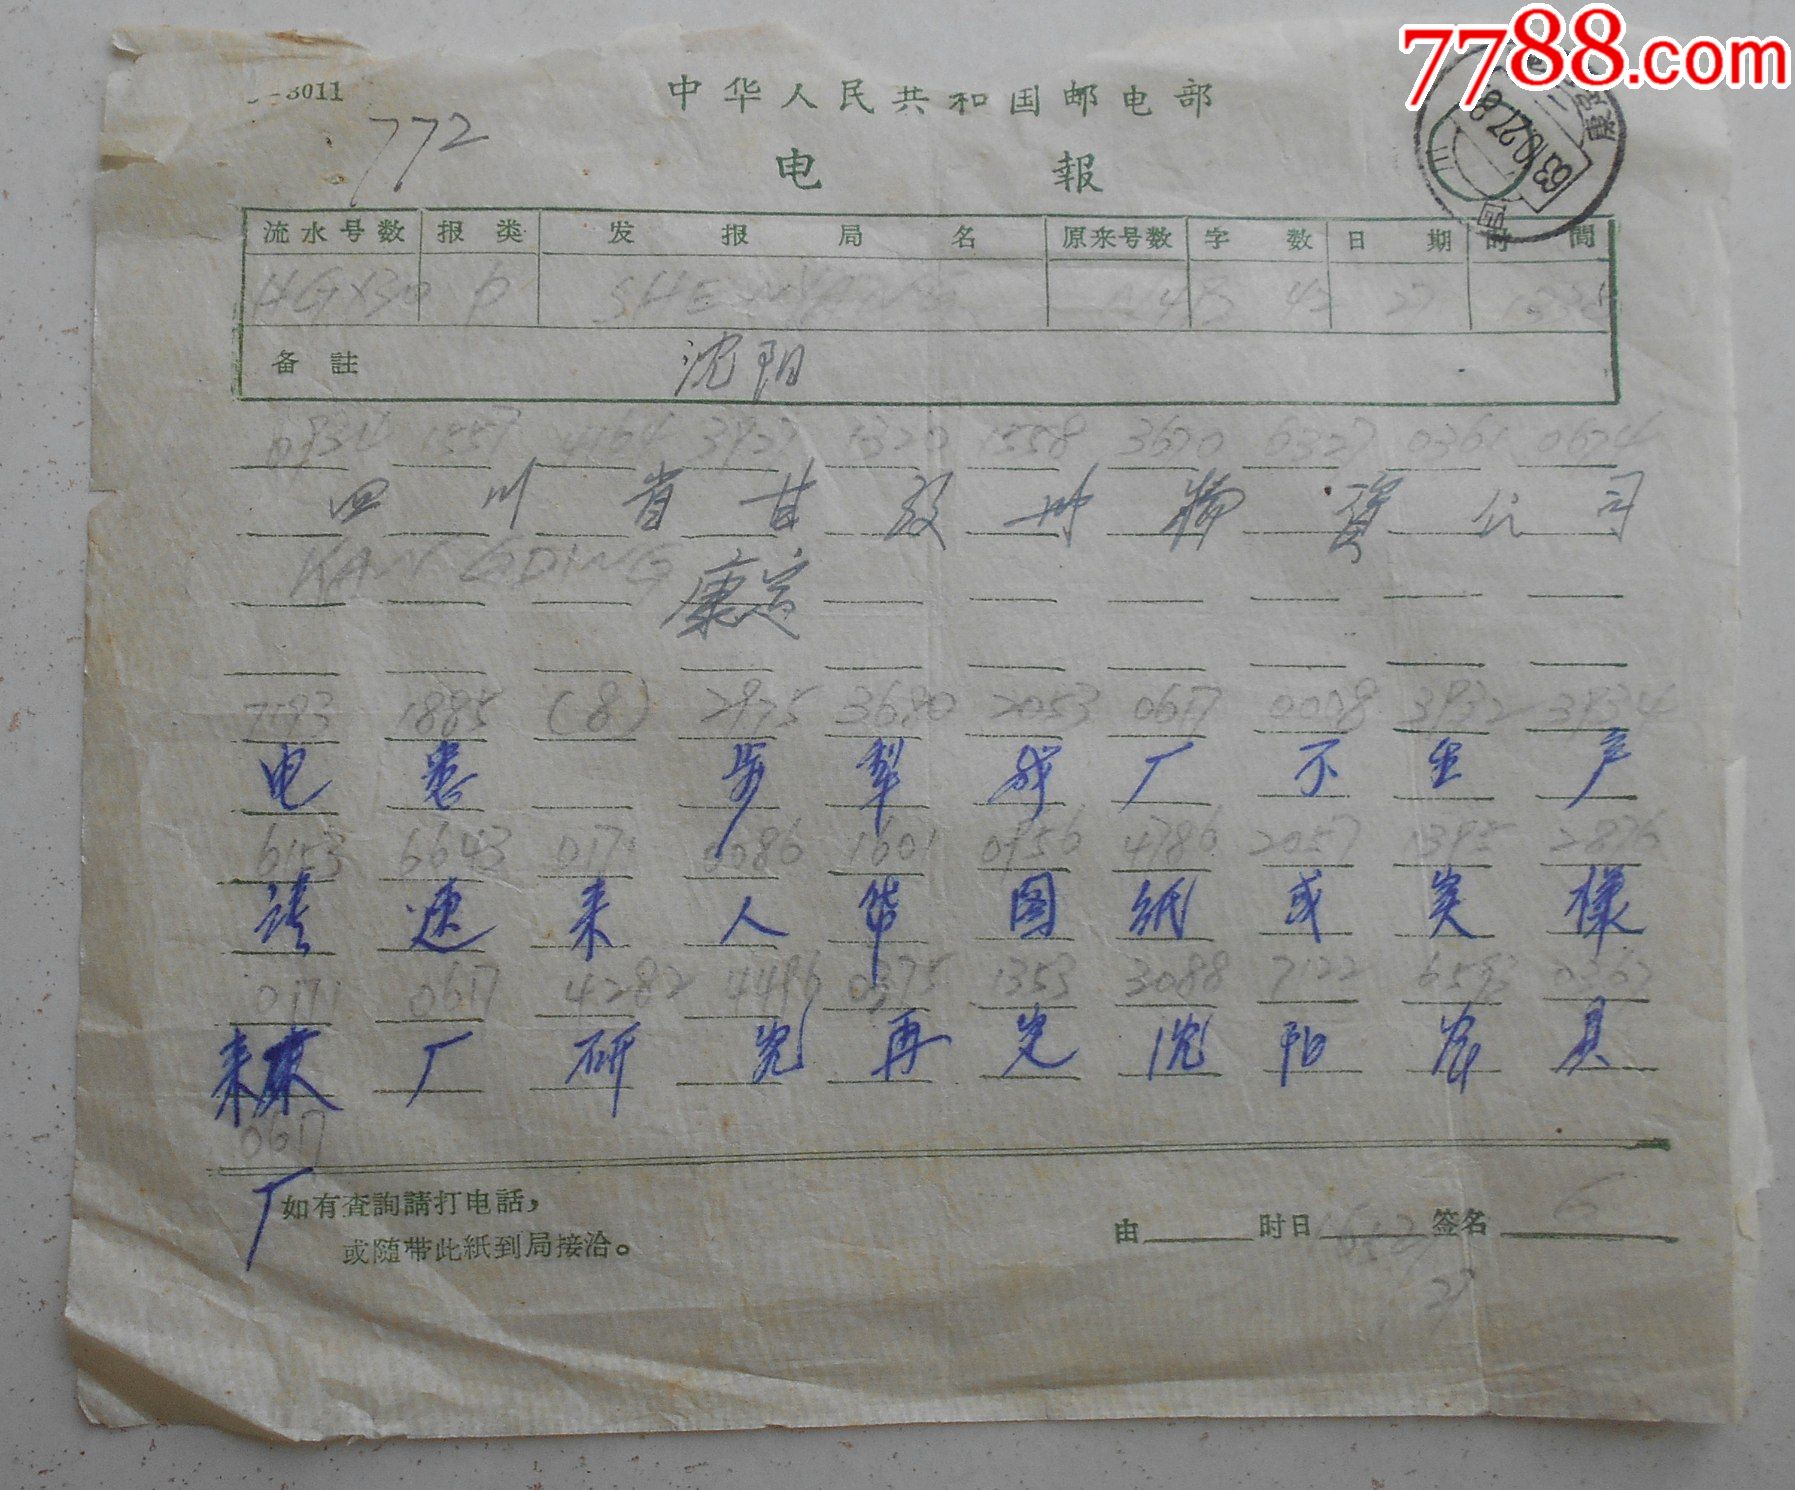 7788.com
-3011
中华人民共和国邮电部
772
电 報
63.10.27.8
康定
流水号数 报类 发报局名 原来号数 字数 日期 时間
SHENYANG 43 27
备註 沈阳
0934 1557 4164 3927 1320 1558 3670 6327 0361 0674
四川省甘孜州物資公司
KANGDING 康定
7193 1885 (8) 2975 3680 2053 0617 0008 3932 3934
电悉 步犁我厂不生产
6153 6643 0171 0086 1601 0956 4786 2057 1395 2876
请速来人带图纸或实樣
0171 0617 4282 4496 0375 1353 3088 7122 6593 0367
来厂研究再定沈阳农具
0617
厂
如有查詢請打电話,
或随带此紙到局接洽。
由 时日 签名
27